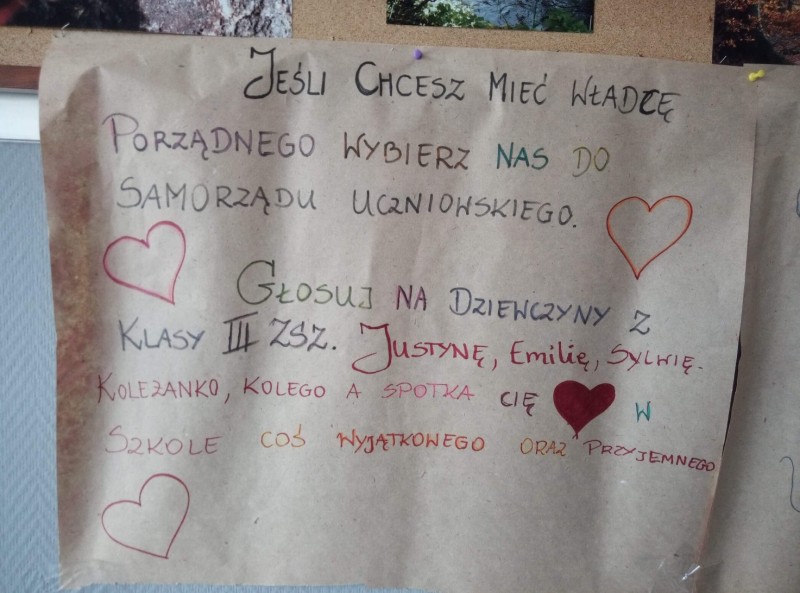 Jeśli Chcesz Mieć Władzę
Porządnego Wybierz Nas Do
Samorządu Uczniowskiego.
Głosuj na Dziewczyny z
Klasy III ZSZ. Justynę, Emilię, Sylwię.
Koleżanko, Kolego a spotka cię w
Szkole coś wyjątkowego oraz przyjemnego